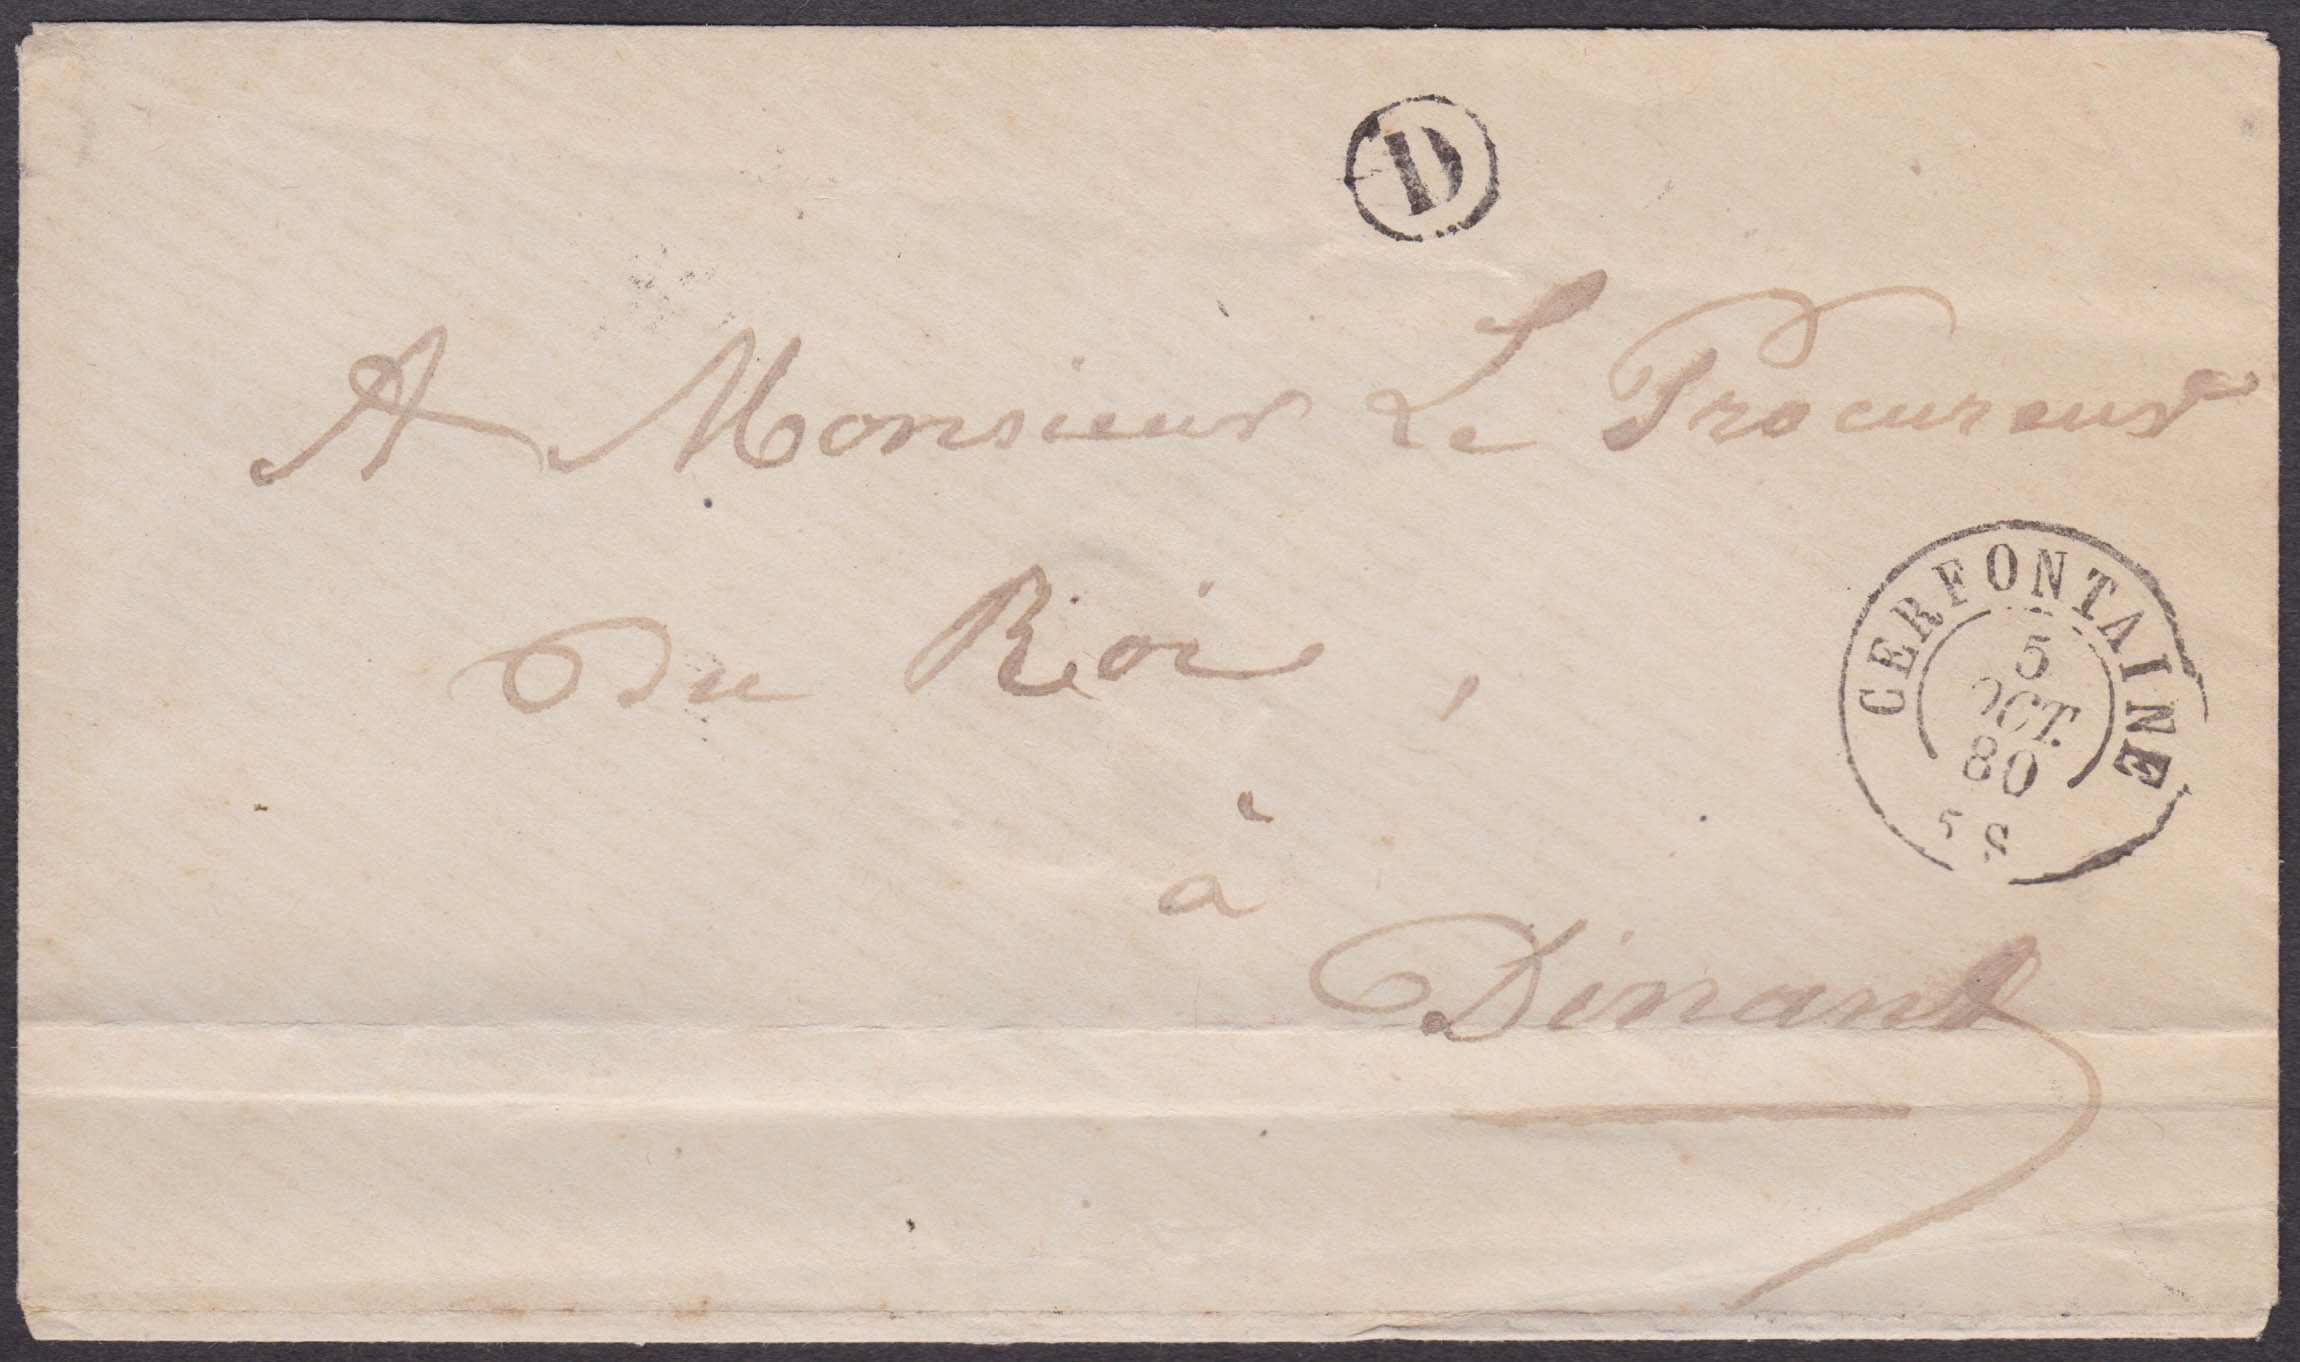 D
A Monsieur Le Procureur
du Roi,
à
Dinant
CERFONTAINE
5
OCT.
80
5 S